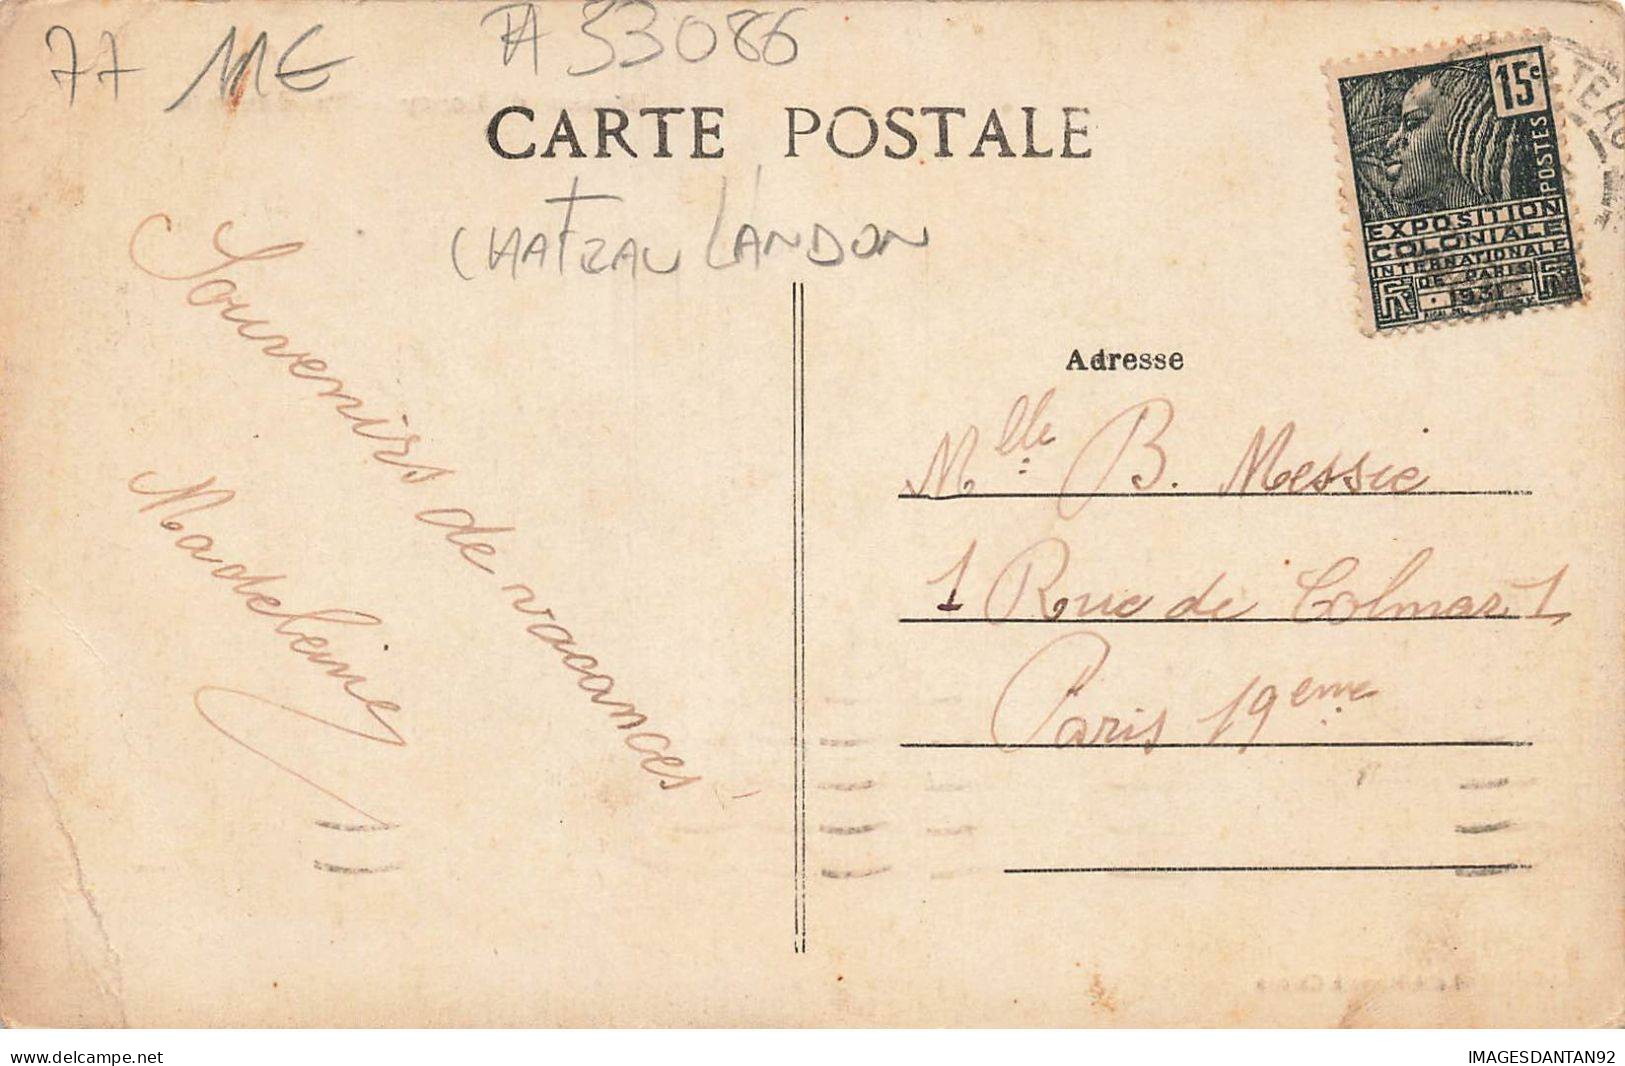 77 ME
TA 33086
CARTE POSTALE
CHATEAU LANDON
15c
POSTES
EXPOSITION
COLONIALE
INTERNATIONALE
DE PARIS
1931
RF RF
TEAU
Souvenirs de vacances
Madeleine
Adresse
Mlle B. Messie
1 Rue de Colmar 1
Paris 19eme
www.delcampe.net
IMAGESDANTAN92